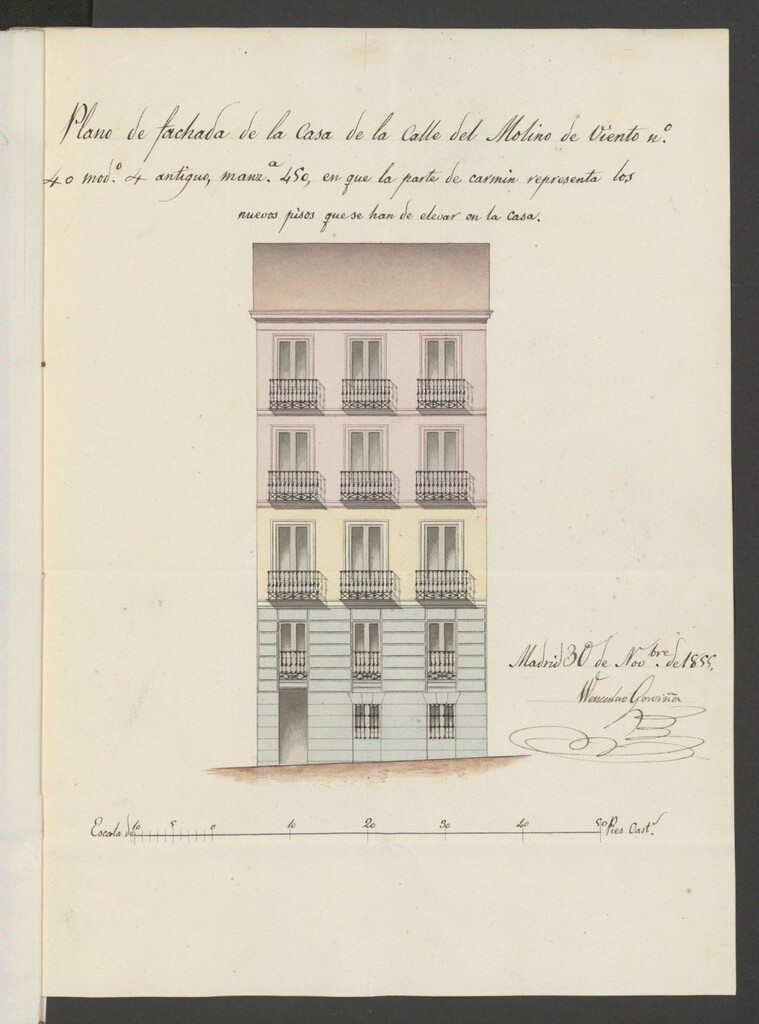 Plano de fachada de la Casa de la Calle del Molino de Viento nº.
40 modº. 4 antiguo, manz.ª 450, en que la parte de carmin representa los
nuevos pisos que se han de elevar en la casa.
Madrid 30 de Novbre. de 1855.
Wenceslao Gaviña
Escala de 10 5 0 10 20 30 40 50 Pies Cast.s